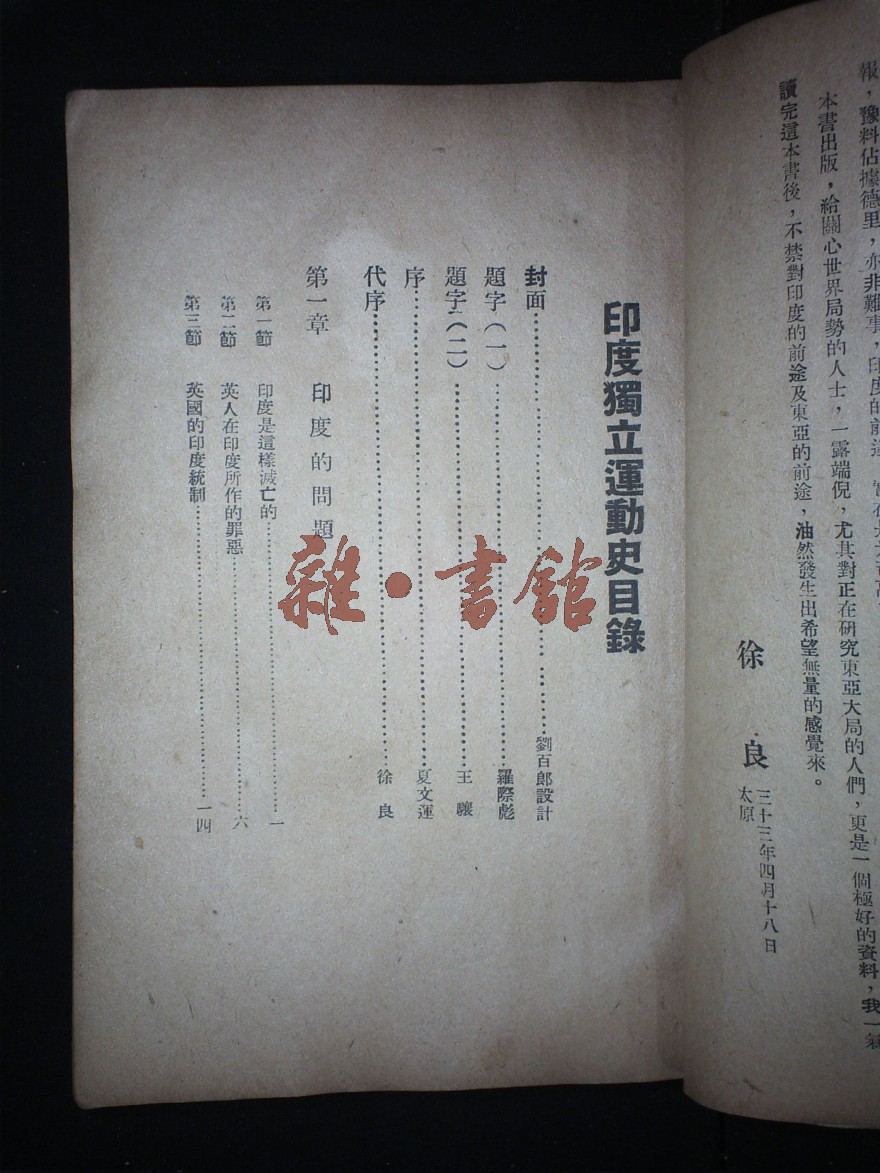 報，豫料佔據德里，亦非難事，印度的前途，
本書出版，給關心世界局勢的人士，一露端倪，尤其對正在研究東亞大局的人們，更是一個極好的資料，我一氣
讀完這本書後，不禁對印度的前途及東亞的前途，油然發生出希望無量的感覺來。
徐良
三十三年四月十八日
太原
印度獨立運動史目錄
封面……劉百郎設計
題字（一）……羅際彪
題字（二）……王驤
序……夏文運
代序……徐良
第一章 印度的問題
第一節 印度是這樣滅亡的……一
第二節 英人在印度所作的罪惡……六
第三節 英國的印度統制……一四
雜·書館